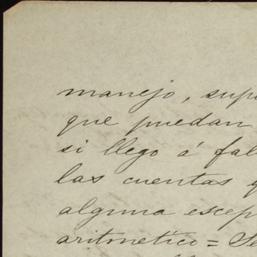 manejo, supu
que puedan
si llego á fal
las cuentas q
alguna escep
aritmetico = Se